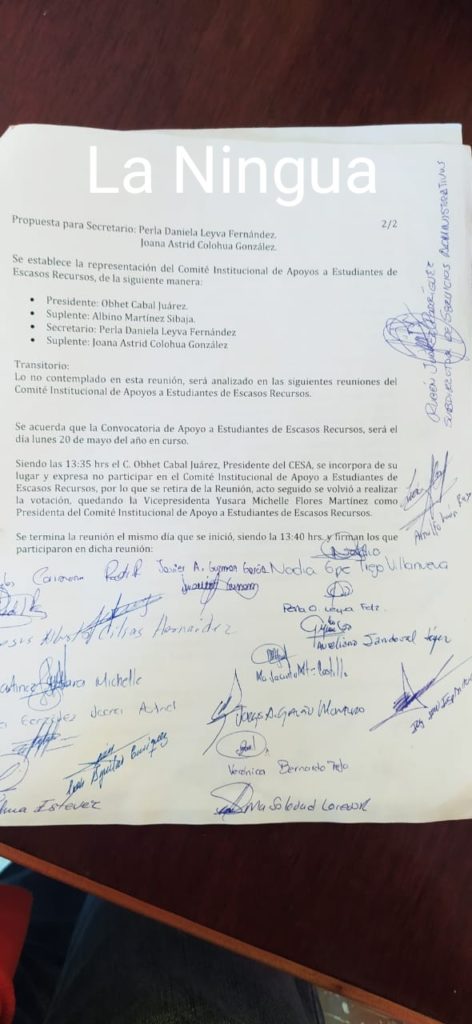 La Ningua
2/2
Propuesta para Secretario: Perla Daniela Leyva Fernández.
Joana Astrid Colohua González.
Se establece la representación del Comité Institucional de Apoyos a Estudiantes de
Escasos Recursos, de la siguiente manera:
• Presidente: Obhet Cabal Juárez.
• Suplente: Albino Martínez Sibaja.
• Secretario: Perla Daniela Leyva Fernández
• Suplente: Joana Astrid Colohua González
Transitorio:
Lo no contemplado en esta reunión, será analizado en las siguientes reuniones del
Comité Institucional de Apoyos a Estudiantes de Escasos Recursos.
Se acuerda que la Convocatoria de Apoyo a Estudiantes de Escasos Recursos, será el
día lunes 20 de mayo del año en curso.
Siendo las 13:35 hrs el C. Obhet Cabal Juárez, Presidente del CESA, se incorpora de su
lugar y expresa no participar en el Comité Institucional de Apoyo a Estudiantes de
Escasos Recursos, por lo que se retira de la Reunión, acto seguido se volvió a realizar
la votación, quedando la Vicepresidenta Yusara Michelle Flores Martínez como
Presidenta del Comité Institucional de Apoyo a Estudiantes de Escasos Recursos.
Se termina la reunión el mismo día que se inició, siendo la 13:40 hrs. y firman los que
participaron en dicha reunión:
Javier A. Guzman García
Nadia Gpe Trejo Villanueva
Perla D. Leyva Fdz.
Aureliano Sandoval
Michelle
Ma Jacinta Mtz Castillo
Veronica Bernardo
Luis Aguilar
Estevez
Ma Soledad
SUBDIRECTOR DE SERVICIOS ADMINISTRATIVOS